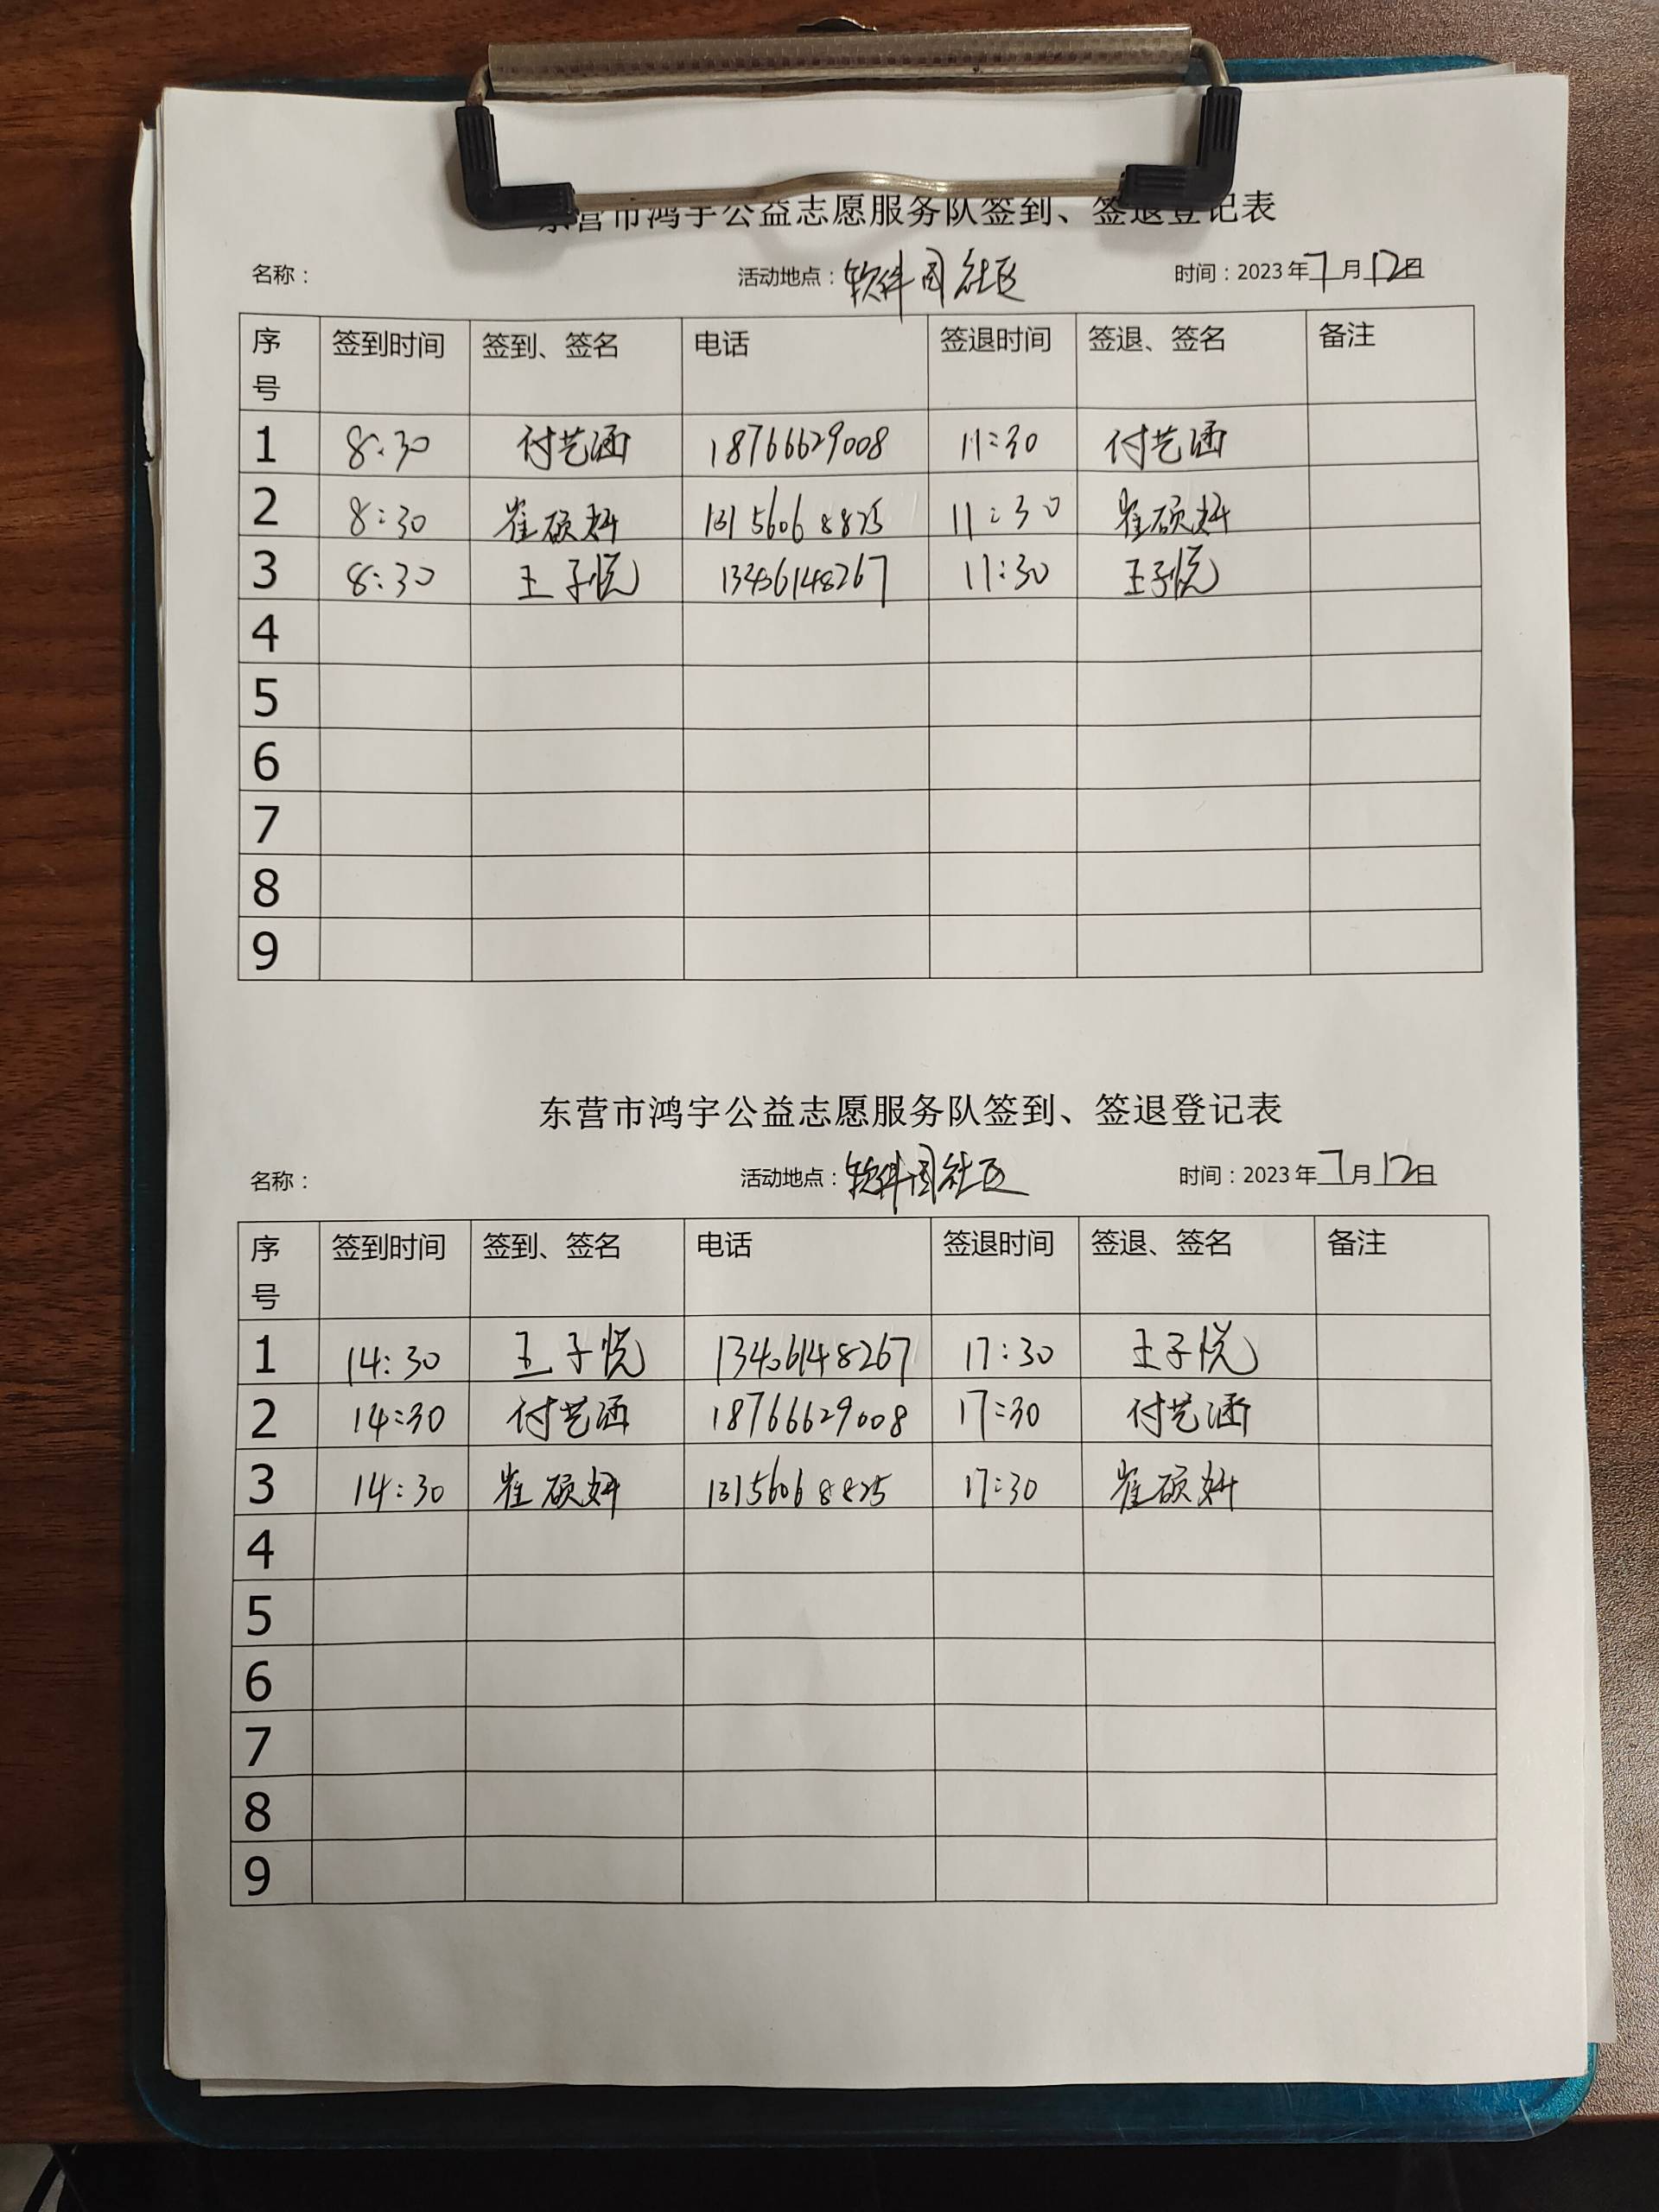 东营市鸿宇公益志愿服务队签到、签退登记表
名称： 活动地点：软件园社区 时间：2023年7月12日
序号 签到时间 签到、签名 电话 签退时间 签退、签名 备注
1 8:30 付艺涵 18766629008 11:30 付艺涵
2 8:30 崔硕妍 13156068825 11:30 崔硕妍
3 8:30 王子悦 13406148267 11:30 王子悦
4
5
6
7
8
9
东营市鸿宇公益志愿服务队签到、签退登记表
名称： 活动地点：软件园社区 时间：2023年7月12日
序号 签到时间 签到、签名 电话 签退时间 签退、签名 备注
1 14:30 王子悦 13406148267 17:30 王子悦
2 14:30 付艺涵 18766629008 17:30 付艺涵
3 14:30 崔硕妍 13156068825 17:30 崔硕妍
4
5
6
7
8
9